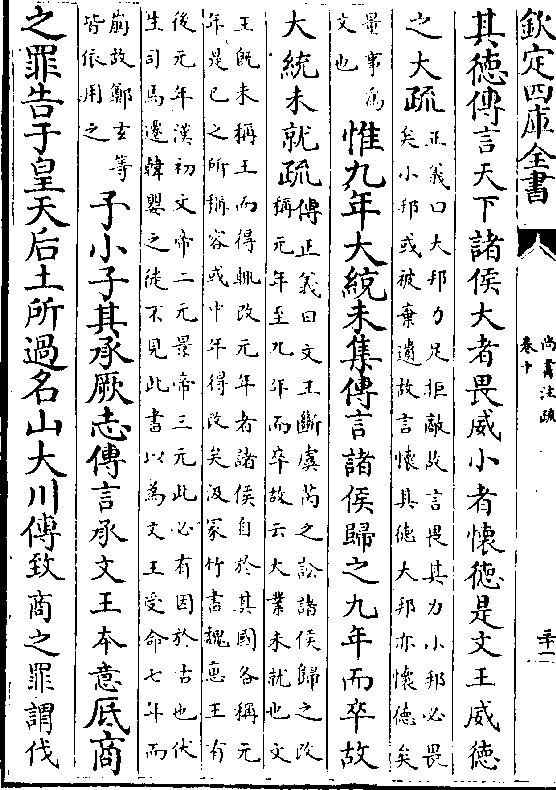 欽定四庫全書
尚書注疏
卷十
三十二
其徳傳言天下諸侯大者畏威小者懷徳是文王威徳
之大疏
正義曰大邦力足拒敵故言畏其力小邦必畏
矣小邦或被棄遺故言懷其徳大邦亦懷徳矣
量事為
文也
惟九年大統未集傳言諸侯歸之九年而卒故
大統未就疏
傳正義曰文王斷虞芮之訟諸侯歸之改
稱元年至九年而卒故云大業未就也文
王既未稱王而得輒改元年者諸侯自於其國各稱元
年是已之所稱容或中年得改矣汲冢竹書魏惠王有
後元年漢初文帝二元景帝三元此必有因於古也伏
生司馬遷韓嬰之徒不見此書以為文王受命七年而
崩故鄭玄等
皆依用之
予小子其承厥志傳言承文王本意厎商
之罪告于皇天后土所過名山大川傳致商之罪謂伐